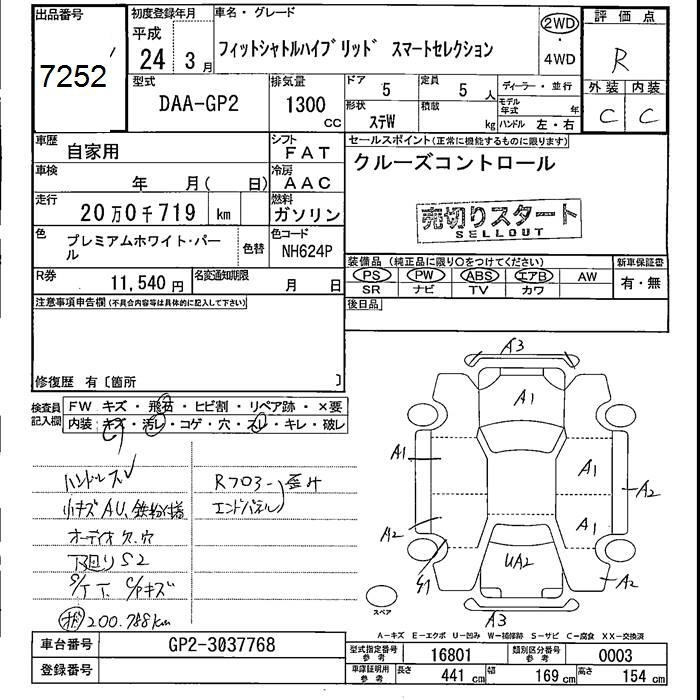 出品番号
7252
初度登録年月
平成
24 3月
車名・グレード
フィットシャトルハイブリッド スマートセレクション
2WD
・
4WD
評価点
R
外装 内装
C C
型式
DAA-GP2
排気量
1300
CC
ドア
5
定員
5 人
形状
ステW
積載
kg
ディーラー・並行
モデル年式
年
ハンドル 左・右
車歴
自家用
シフト
FAT
車検
年 月( 日)
冷房
AAC
走行
20万0千719 km
燃料
ガソリン
色
プレミアムホワイト・パール
色替
色コード
NH624P
R券
11,540円
名変通知期限
月 日
セールスポイント(正常に機能するものに限ります)
クルーズコントロール
売切りスタート
SELLOUT
装備品(純正品に限り○をつけてください)
PS PW ABS エアB AW
SR ナビ TV カワ
新車保証書
有・無
後日品
注意事項申告欄(不具合内容等は具体的に記入して下さい)
修復歴 有〔箇所 〕
検査員記入欄
FW キズ・飛石・ヒビ割・リペア跡・×要
内装 キズ・汚レ・コゲ・穴・スレ・キレ・破レ
ハンドルスレ
小キズAU、鉄粉
オーディオ欠、穴
下廻りS2
キズ
200.788km
R703 歪み
エンドパネル
A3
A1
A1
A1
A2
A1
A2
UA2
A2
A3
スペア
A-キズ E-エクボ U-凹み W-補修跡 S-サビ C-腐食 XX-交換済
車台番号
GP2-3037768
登録番号
型式指定番号
参考
16801
類別区分番号
参考
0003
車庫証明用
参考
長さ
441 cm
幅
169 cm
高さ
154 cm